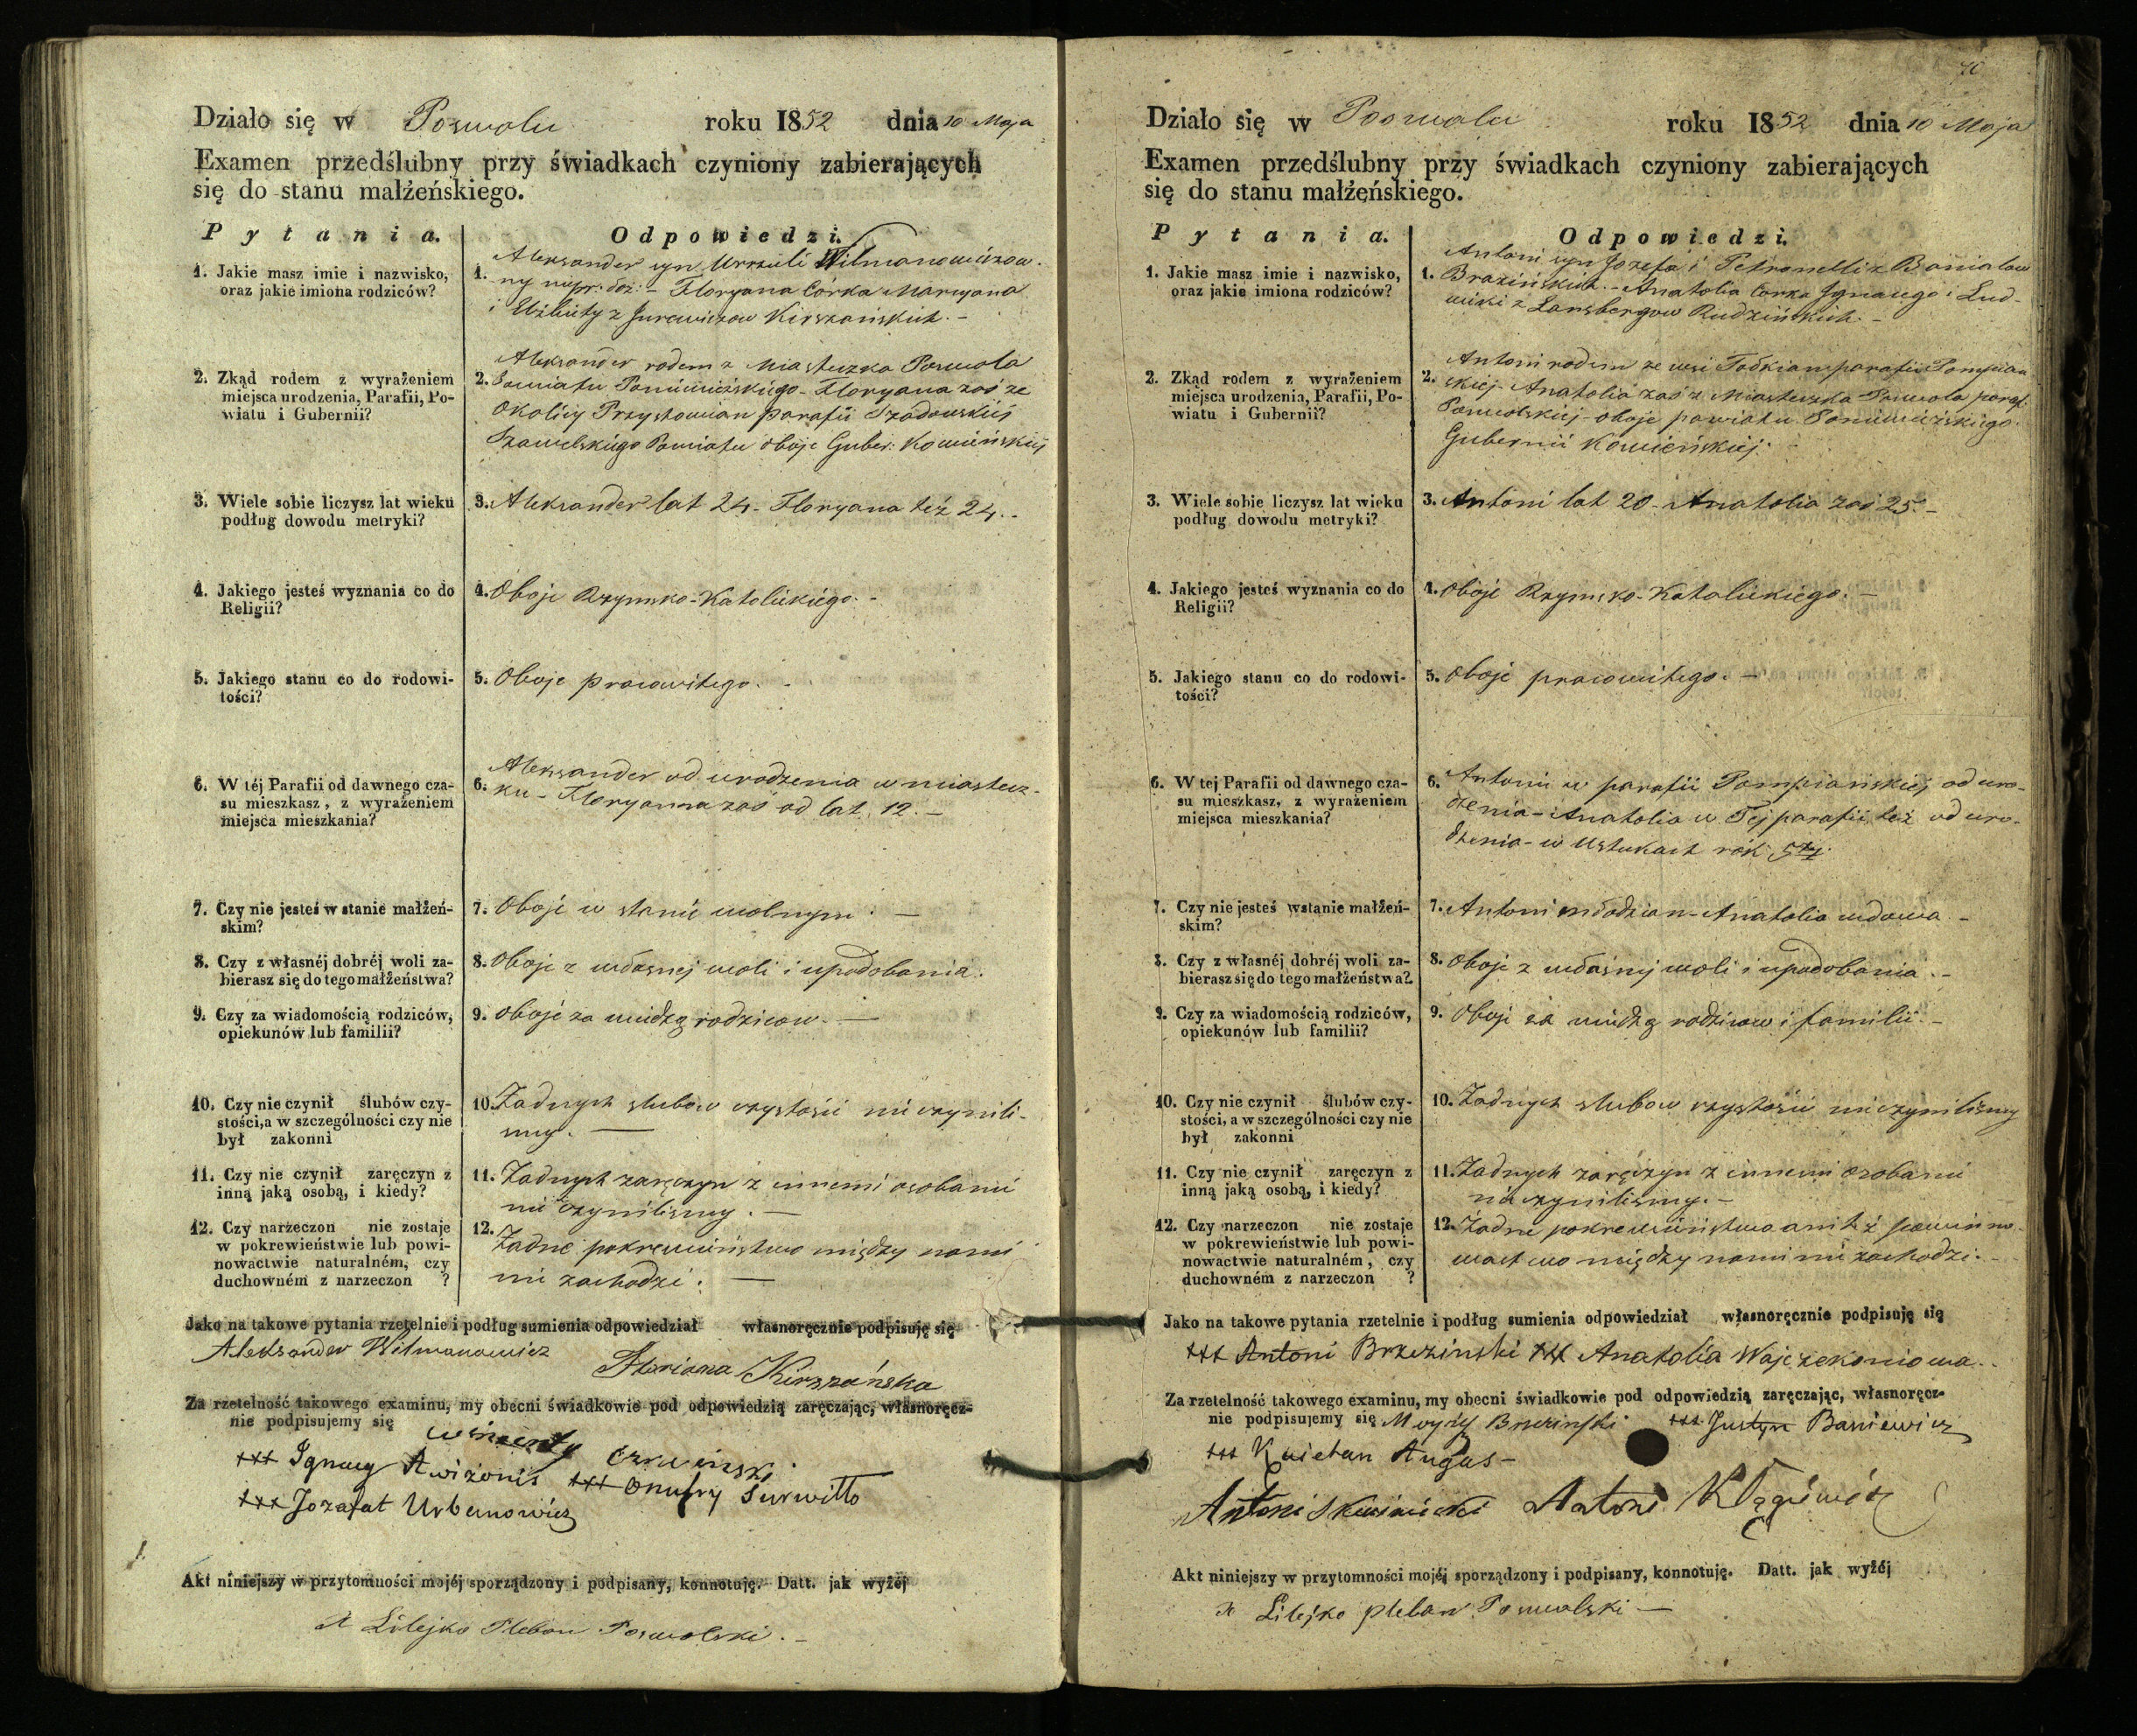 Działo się w Poswolu roku 1852 dnia 10 Maja
Examen przedślubny przy świadkach czyniony zabierających
się do stanu małżeńskiego.
Pytania. Odpowiedzi.
1. Jakie masz imie i nazwisko,
oraz jakie imiona rodziców?
1. Aleksander syn Urszuli Wilmanowiczow-
ny - Floryana Córka Maryana
i Elżbiety z Jurewiczow Kirszańskich. -
2. Zkąd rodem z wyrażeniem
miejsca urodzenia, Parafii, Po-
wiatu i Gubernii?
2. Aleksander rodem z Miasteczka Poswola
Powiatu Poniewiezskiego - Floryana zaś ze
Okolicy Przystowian parafii Szadowskiej
Szawelskiego Powiatu oboje Guber: Kowieńskiej
3. Wiele sobie liczysz lat wieku
podług dowodu metryki?
3. Aleksander lat 24. Floryana też 24. -
4. Jakiego jesteś wyznania co do
Religii?
4. Oboje Rzymsko-Katolickiego. -
5. Jakiego stanu co do rodowi-
tości?
5. Oboje pracowitego. -
6. W téj Parafii od dawnego cza-
su mieszkasz, z wyrażeniem
miejsca mieszkania?
6. Aleksander od urodzenia w miastecz-
ku - Floryanna zaś od lat 12. -
7. Czy nie jesteś w stanie małżeń-
skim?
7. Oboje w stanie wolnym. -
8. Czy z własnéj dobréj woli za-
bierasz się do tego małżeństwa?
8. Oboje z własnej woli i upodobania.
9. Czy za wiadomością rodziców,
opiekunów lub familii?
9. Oboje za wiedzą rodzicow. -
10. Czy nie czynił ślubów czy-
stości, a w szczególności czy nie
był zakonni
10. Żadnych slubow czystości nie czynili-
smy. -
11. Czy nie czynił zaręczyn z
inną jaką osobą, i kiedy?
11. Żadnych zaręczyn z innemi osobami
nie czynilismy. -
12. Czy narzeczon nie zostaje
w pokrewieństwie lub powi-
nowactwie naturalném, czy
duchowném z narzeczon ?
12. Żadne pokrewieństwo między nami
nie zachodzi. -
Jako na takowe pytania rzetelnie i podług sumienia odpowiedział własnoręcznie podpisuję się
Aleksander Wilmanowicz
Floriana Kirszańska
Za rzetelność takowego examinu, my obecni świadkowie pod odpowiedzią zaręczając, własnoręcz-
nie podpisujemy się
Wincenty Czrwinski
+++ Ignacy Awiżonis +++ Onufry Surwitto
+++ Jozafat Urbanowicz
Akt niniejszy w przytomności mojéj sporządzony i podpisany, konnotuję. Datt. jak wyżéj
X Lilejko Pleban Poswolski. -
70
Działo się w Poswolu roku 1852 dnia 10 Maja
Examen przedślubny przy świadkach czyniony zabierających
się do stanu małżeńskiego.
Pytania. Odpowiedzi.
1. Jakie masz imie i nazwisko,
oraz jakie imiona rodziców?
1. Antoni syn Jozefa i Petronelli z
Brazińskich. - Anatolia Corka Ignacego i Lud-
wiki z Lansbergow Rudzińskich. -
2. Zkąd rodem z wyrażeniem
miejsca urodzenia, Parafii, Po-
wiatu i Gubernii?
2. Antoni rodem ze wsi parafii Pompian
skiej - Anatolia zaś z Miasteczka Poswola paraf.
Poswolskiej - oboje powiatu Poniewiezskiego.
Gubernii Kowieńskiej.
3. Wiele sobie liczysz lat wieku
podług dowodu metryki?
3. Antoni lat 20 - Anatolia zaś 25. -
4. Jakiego jesteś wyznania co do
Religii?
4. Oboje Rzymsko-Katolickiego. -
5. Jakiego stanu co do rodowi-
tości?
5. Oboje pracowitego. -
6. W tej Parafii od dawnego cza-
su mieszkasz, z wyrażeniem
miejsca mieszkania?
6. Antoni w parafii Pompiańskiej od uro-
dzenia - Anatolia w Tej parafii też od uro-
dzenia - w Ustukach rok 5ty.
7. Czy nie jesteś wstanie małżeń-
skim?
7. Antoni młodzian - Anatolia wdowa. -
8. Czy z własnéj dobréj woli za-
bierasz się do tego małżeństwa?
8. Oboje z własnej woli i upodobania. -
9. Czy za wiadomością rodziców,
opiekunów lub familii?
9. Oboje za wiedzą rodzicow i familii. -
10. Czy nie czynił ślubów czy-
stości, a w szczególności czy nie
był zakonni
10. Żadnych slubow czystości nie czynilismy
11. Czy nie czynił zaręczyn z
inną jaką osobą, i kiedy?
11. Żadnych zaręczyn z innemi osobami
nie czynilismy. -
12. Czy narzeczon nie zostaje
w pokrewieństwie lub powi-
nowactwie naturalném, czy
duchowném z narzeczon ?
12. Żadne pokrewieństwo ani też powinno-
wactwo między nami nie zachodzi. -
Jako na takowe pytania rzetelnie i podług sumienia odpowiedział własnoręcznie podpisuję się
+++ Antoni Brzezinski +++ Anatolia Wojczekoniowa. -
Za rzetelność takowego examinu, my obecni świadkowie pod odpowiedzią zaręczając, własnoręcz-
nie podpisujemy się Brzezinski +++ Justyn Baniewicz
+++ Kwietan Augus -
Antoni Antoni
Akt niniejszy w przytomności mojéj sporządzony i podpisany, konnotuję. Datt. jak wyżéj
X Lilejko pleban Poswolski -